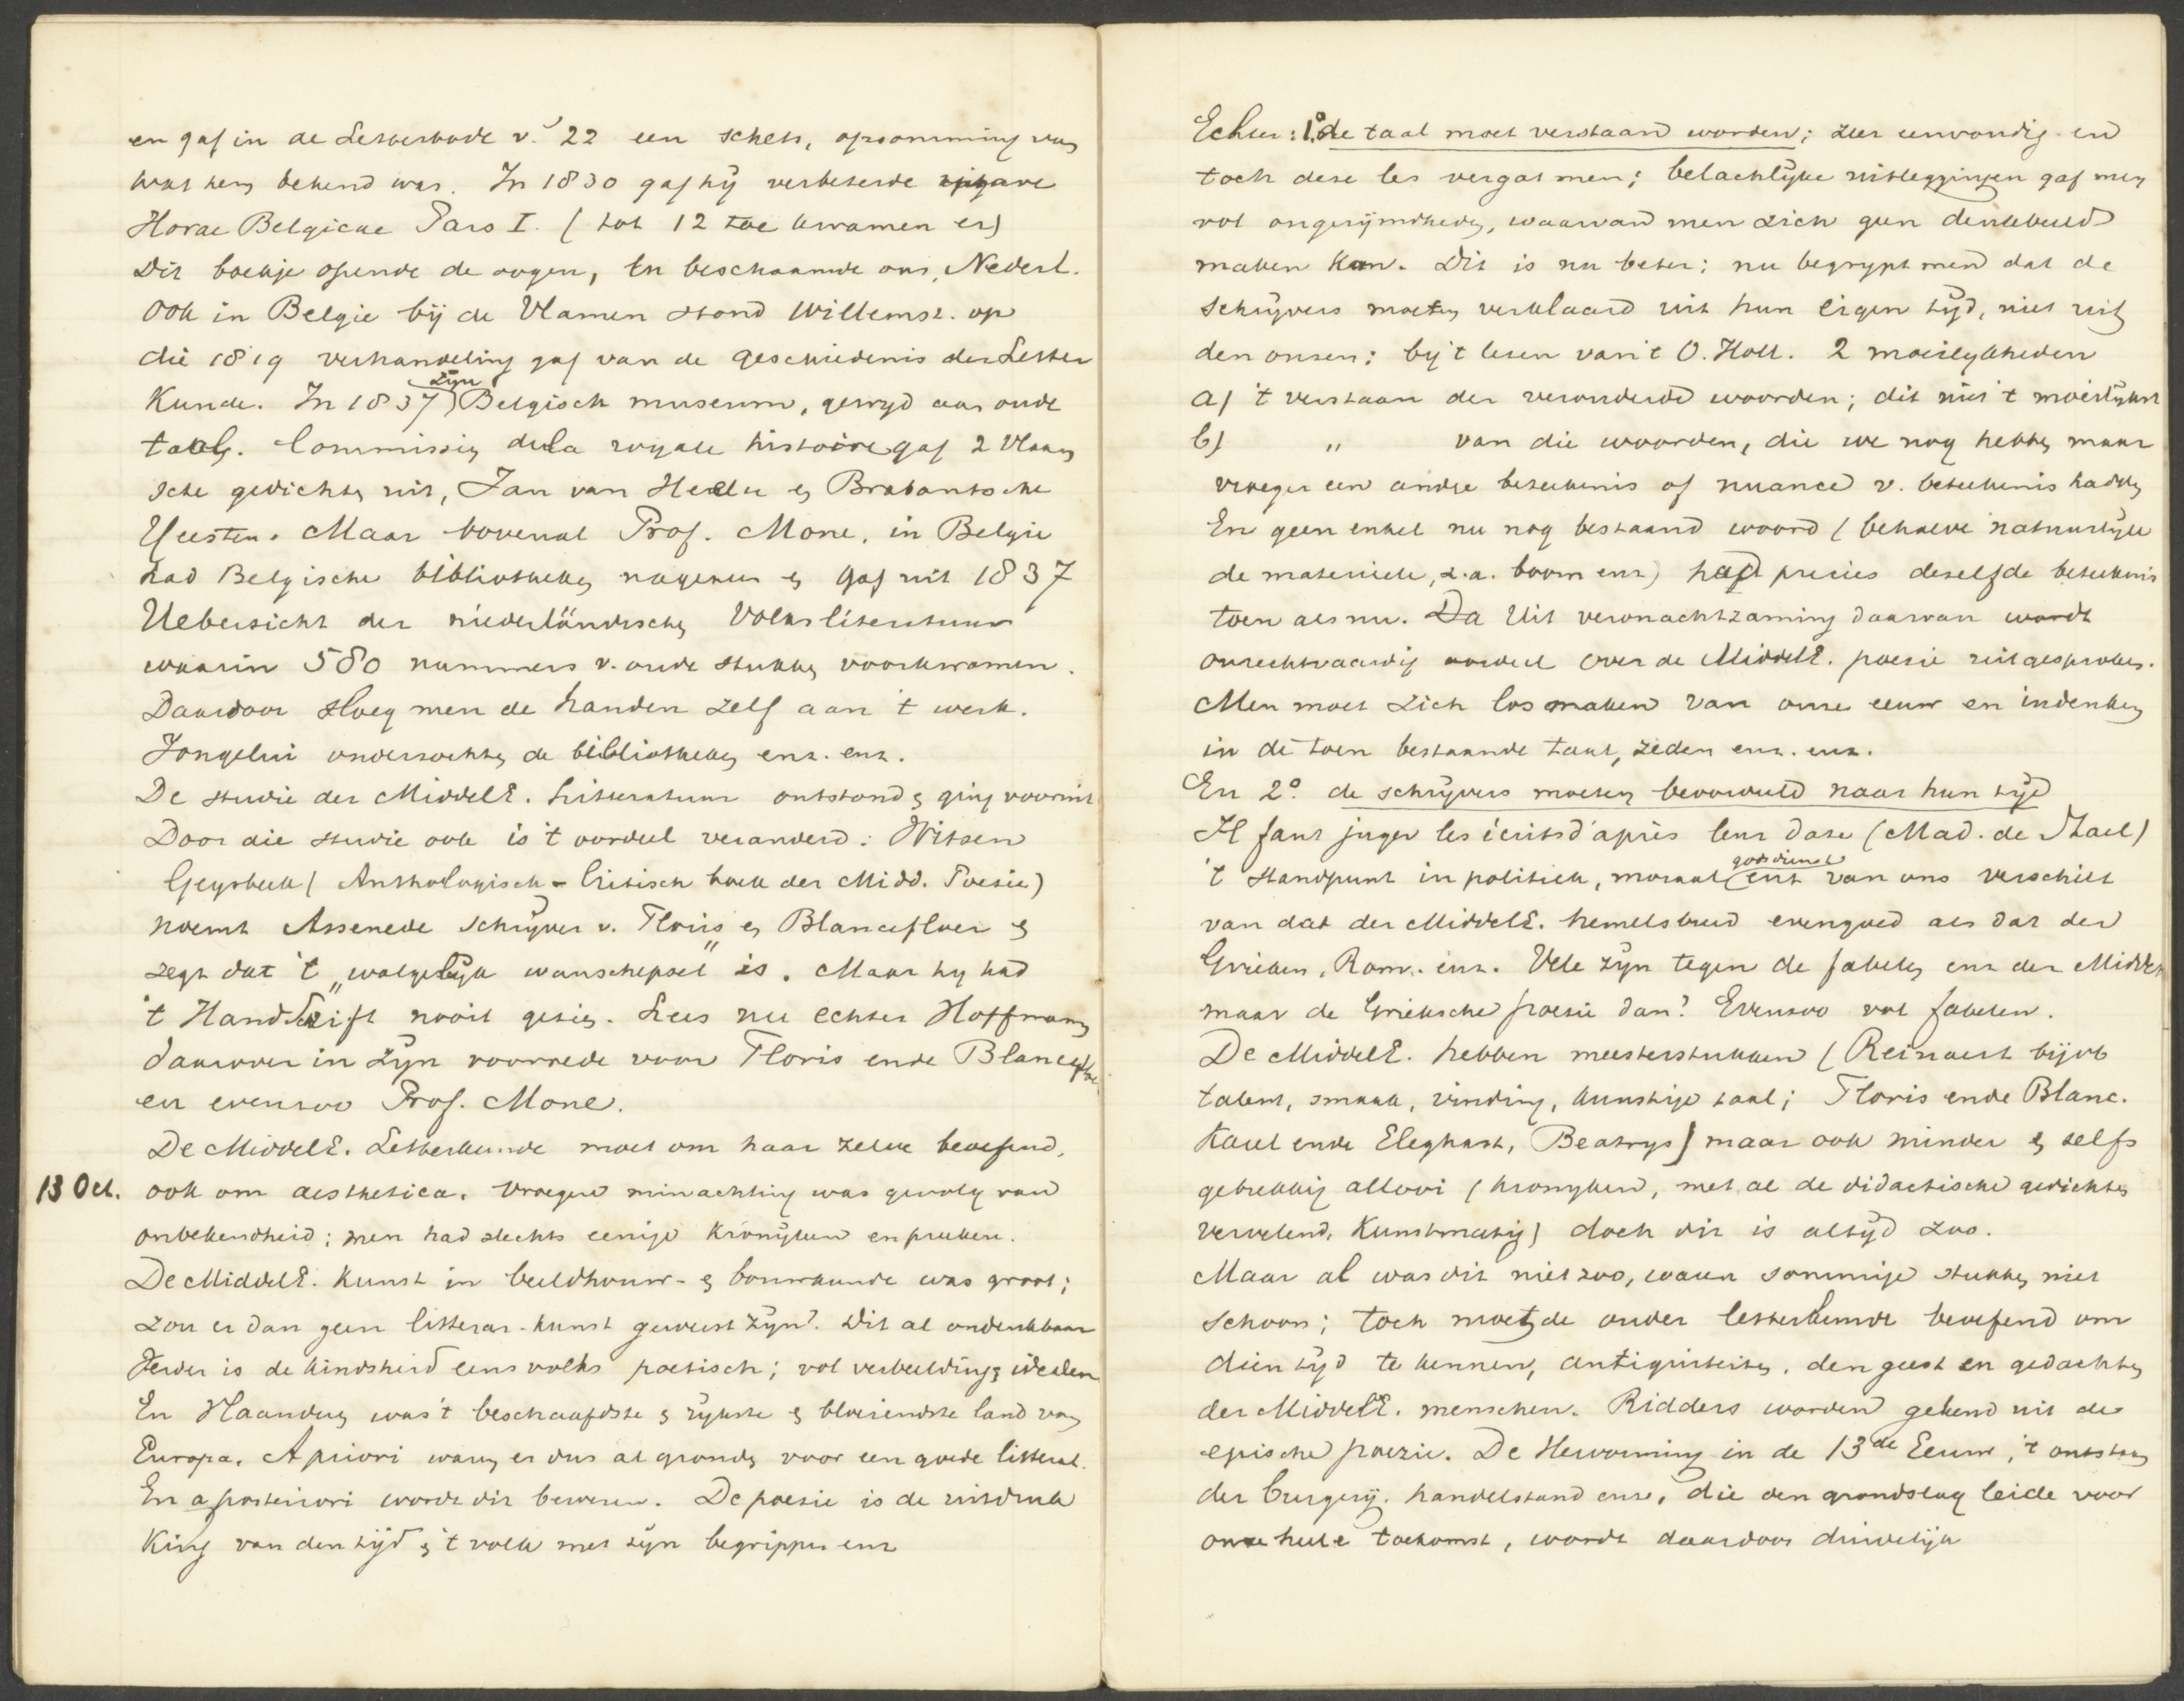 en gaf in de Letterbode v. 22 een schets, opsomming van
wat hem bekend was. In 1830 gaf hij verbeterde uitgave
Horae Belgicae Pars I. (tot 12 toe kwamen er)
Dit boekje opende de oogen, en beschaamde ons, Nederl.
Ook in Belgie bij de Vlamen stond Willems z. op
die 1819 verhandeling gaf van de geschiedenis der Letter
kunde. In 1837 zijn Belgisch museum, gewijd aan oude
taal. Commissie de la royale histoire gaf 2 Vlaam
sche gedichten uit, Jan van Heelu en Brabantsche
Yeesten. Maar bovenal Prof. Mone, in Belgie
had Belgische bibliotheken nagezien en gaf uit 1837
Uebersicht der niederländischen Volksliteratuur
waarin 580 nummers v. oude stukken voorkwamen.
Daardoor sloeg men de handen zelf aan 't werk.
Jongelui onderzochten de bibliotheken enz. enz.
De studie der MiddelE. Litteratuur ontstond en ging vooruit
Door die studie ook is 't oordeel veranderd: Witsen
Geysbeek (Anthologisch-Critisch boek der Midd. Poesie)
noemt Assenede schrijver v. Floris en Blancefloer en
zegt dat 't „walgelijk wanschepsel" is. Maar hij had
't Handschrift nooit gezien. Lees nu echter Hoffmann
daarover in zijn voorrede voor Floris ende Blancefloer
en evenzoo Prof. Mone.
De MiddelE. Letterkunde moet om haar zelve beoefend,
13 Oct. ook om aesthetica. Vroegere minachting was gevolg van
onbekendheid; men had slechts eenige kronijken en preeken.
De MiddelE. kunst in beeldhouw- en bouwkunde was groot;
zou er dan geen litterar-kunst geweest zijn? Dit al ondenkbaar
Ieder is de kindsheid eens volks poetisch; vol verbeelding en idealen
En Vlaanderen was 't beschaafdste en rijkste en bloeiendste land van
Europa. A priori waren er dus al gronden voor een goede litterat.
En a posteriori wordt dit bewezen. De poesie is de uitdruk
king van den tijd en 't volk met zijn begrippen enz
Echter: 1° de taal moet verstaan worden; zeer eenvoudig en
toch deze les vergat men; belachlijke uitleggingen gaf men
vol ongerijmdheden, waarvan men zich geen denkbeeld
maken kan. Dit is nu beter; nu begrypt men dat de
schrijvers moeten verklaard uit hun eigen tijd, niet uit
den onzen; bij 't lezen van 't O. Holl. 2 moeilijkheden
a) 't verstaan der verouderde woorden; dit niet 't moeilijkst
b) " van die woorden, die we nog hebben maar
vroeger een andre beteekenis of nuance v. beteekenis hadden
En geen enkel nu nog bestaand woord (behalve natuurlijk
de materieele, z.a. boom enz) had precies dezelfde beteekenis
toen als nu. Da Uit veronachtzaming daarvan wordt
onrechtvaardig oordeel over de MiddelE. poesie uitgesproken.
Men moet zich los maken van onze eeuw en indenken
in de toen bestaande taal, zeden enz. enz.
En 2° de schrijvers moeten beoordeeld naar hun tijd
Il faut juger les écrits d'après leur date (Mad. de Stael)
't standpunt in politiek, moraal godsdienst enz van ons verschilt
van dat der MiddelE. hemelsbreed evengoed als dat der
Grieken, Rom. enz. Vele zijn tegen de fabelen enz der MiddelE
maar de Grieksche poesie dan? Evenzoo vol fabelen.
De MiddelE. hebben meesterstukken (Reinaert bijvb
talent, smaak, vinding, kunstige taal; Floris ende Blanc.
Karel ende Eleghast, Beatrys) maar ook minder en zelfs
gebrekkig allooi (kronyken, met al de didactische gedichten
vervelend, kunstmatig) doch dit is altijd zoo.
Maar al was dit niet zoo, waren sommige stukken niet
schoon; toch moet de ouder letterkunde beoefend om
dien tijd te kennen, antiquiteiten, den geest en gedachten
der MiddelE. menschen. Ridders worden gekend uit de
epische poezie. De Hervorming in de 13de Eeuw, 't ontstaan
der burgerij. handelstand enz, die den grondslag leide voor
onze heele toekomst, wordt daardoor duidelijk